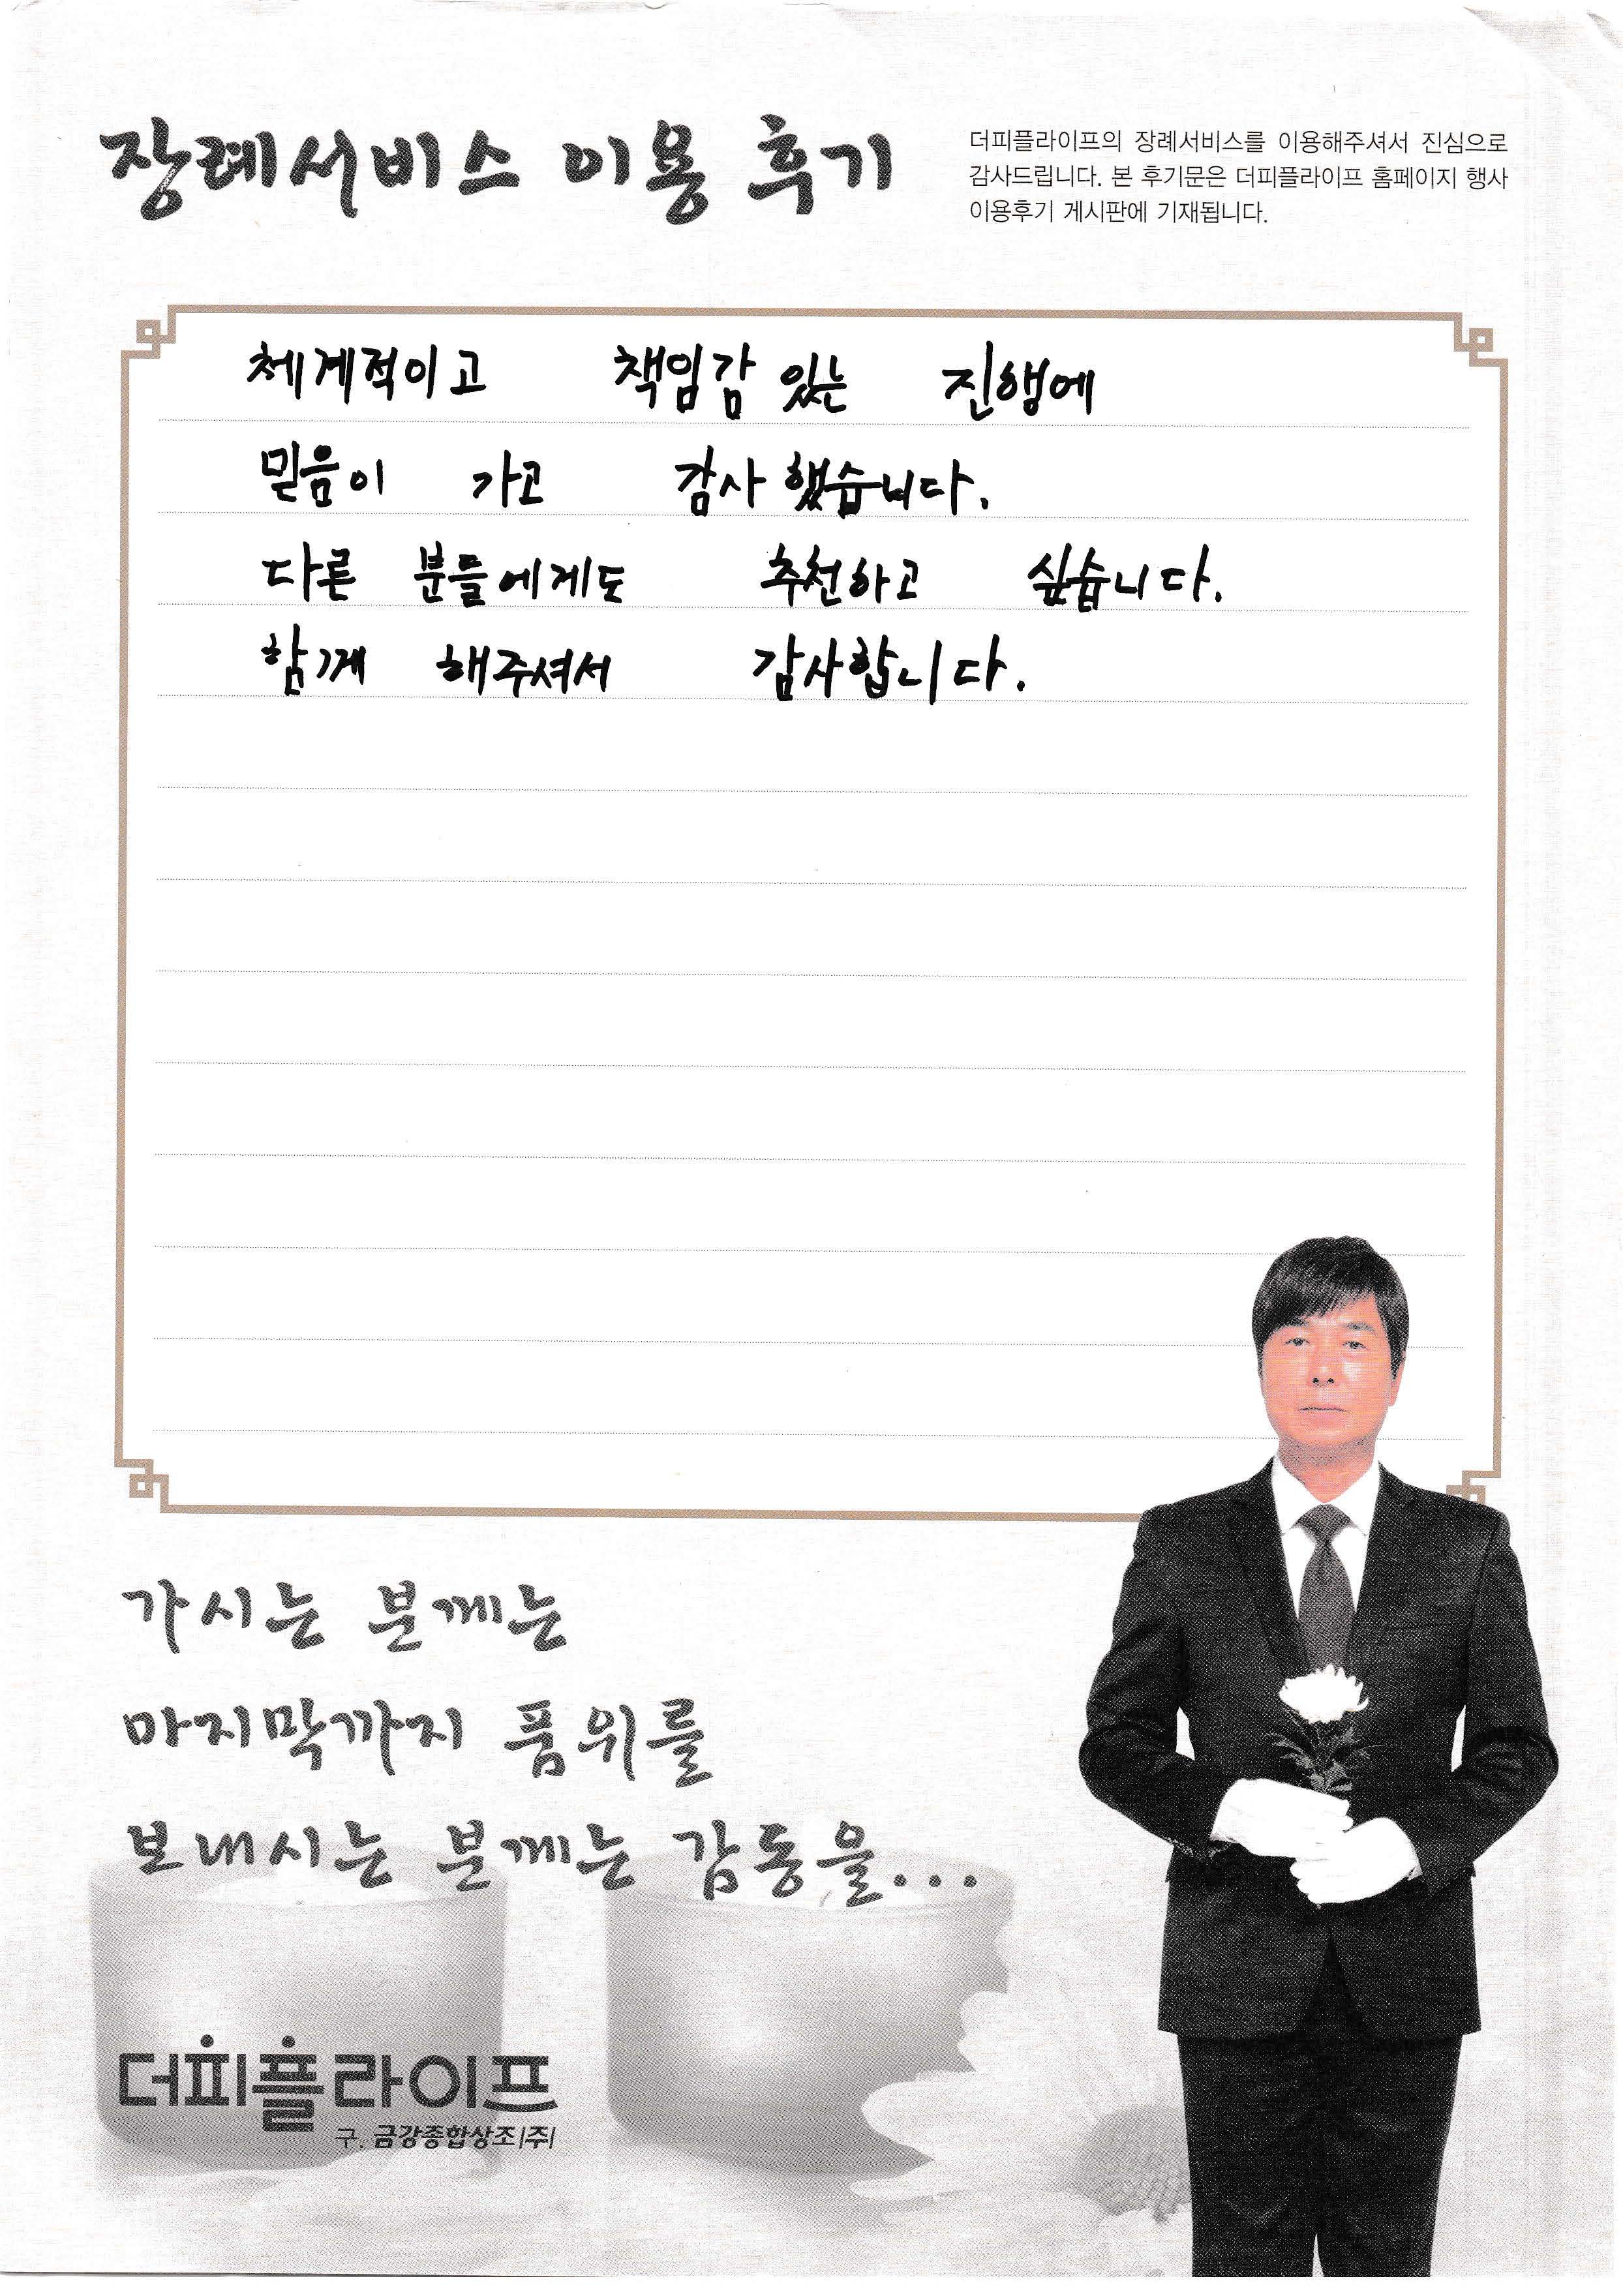 장례서비스 이용 후기
더피플라이프의 장례서비스를 이용해주셔서 진심으로
감사드립니다. 본 후기문은 더피플라이프 홈페이지 행사
이용후기 게시판에 기재됩니다.
체계적이고 책임감 있는 진행에
믿음이 가고 감사했습니다.
다른 분들에게도 추천하고 싶습니다.
함께 해주셔서 감사합니다.
가시는 분께는
마지막까지 품위를
보내시는 분께는 감동을...
더피플라이프
구. 금강종합상조(주)